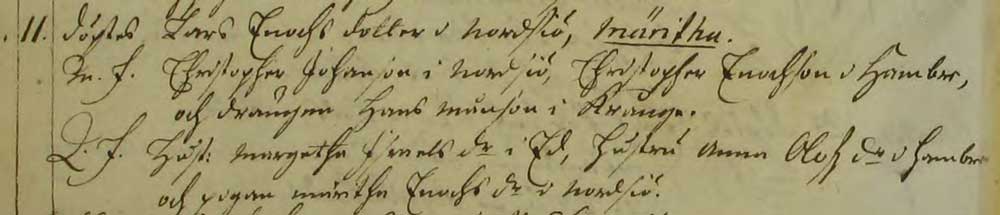 11. döptes Lars Enochs dotter i Nordsiö, Märitha.
M. f. Christopher Johanson i Nordsiö, Christopher Enochson i Hambre,
och drängen Hans Munson i Krånge.
Q. f. Hust: Margetha Israels dr i Ed, Hustru Anna Olofz dr i Hambre
och pigan Märitha Enochs dr i Nordsiö.